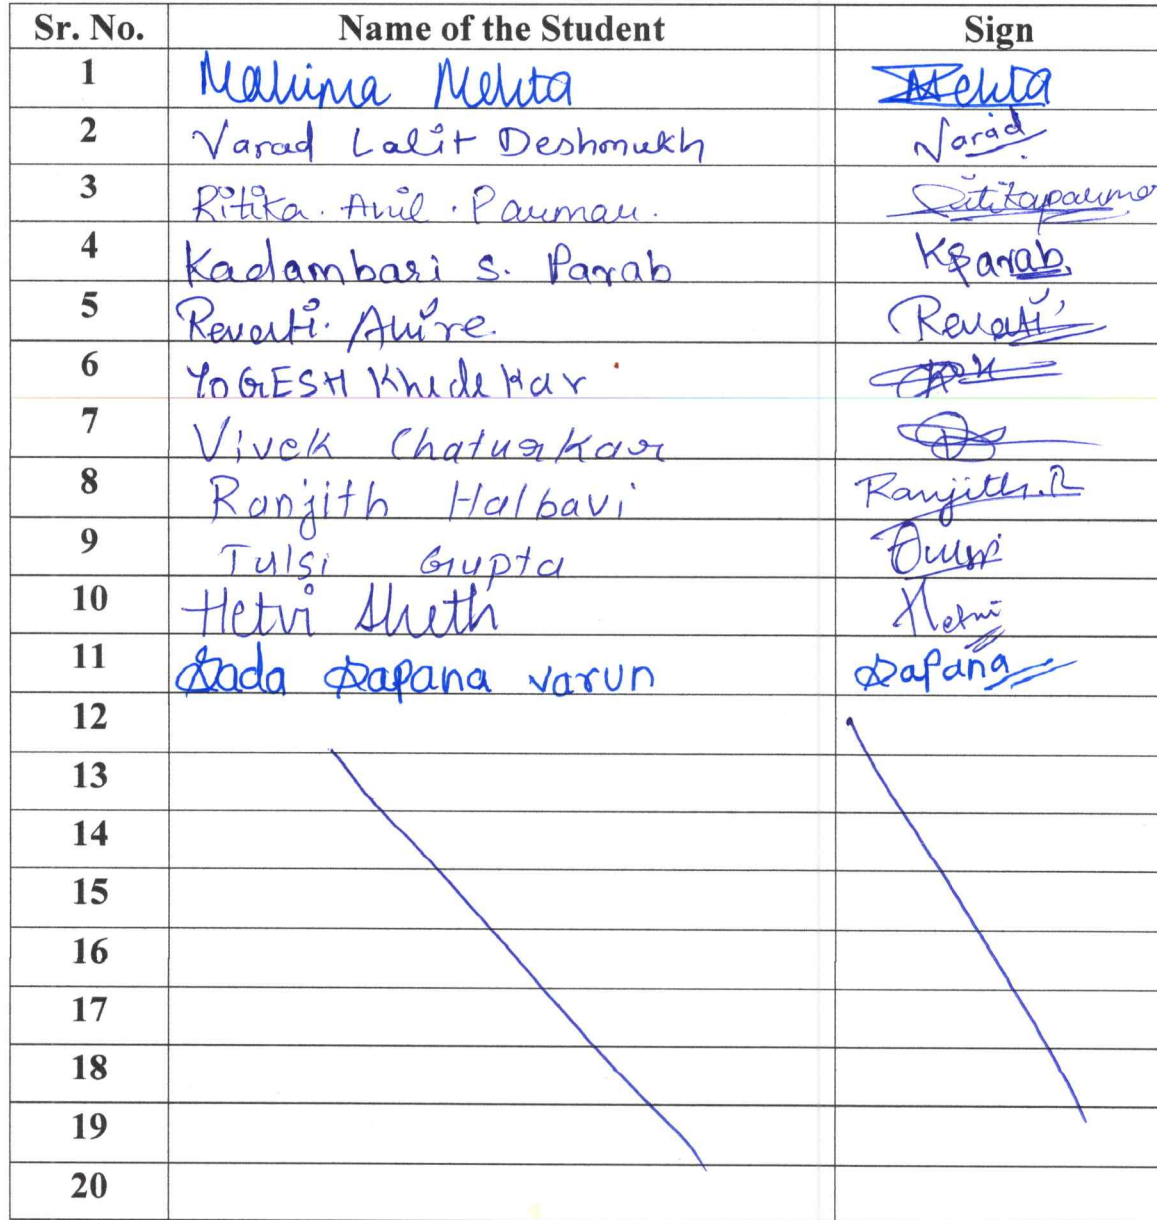 Sr. No. Name of the Student Sign
1 Mahima Mehta Mehta
2 Varad Lalit Deshmukh Varad
3 Ritika. Anil. Parmar. Ritikaparmar
4 Kadambari S. Parab KSParab
5 Revati. Ahire. Revati
6 YoGESH Khedekar
7 Vivek Chaturkar
8 Ranjith Halbavi Ranjith.R
9 Tulsi Gupta
10 Hetvi Sheth Hetvi
11 Sada Sapana varun Sapana
12
13
14
15
16
17
18
19
20